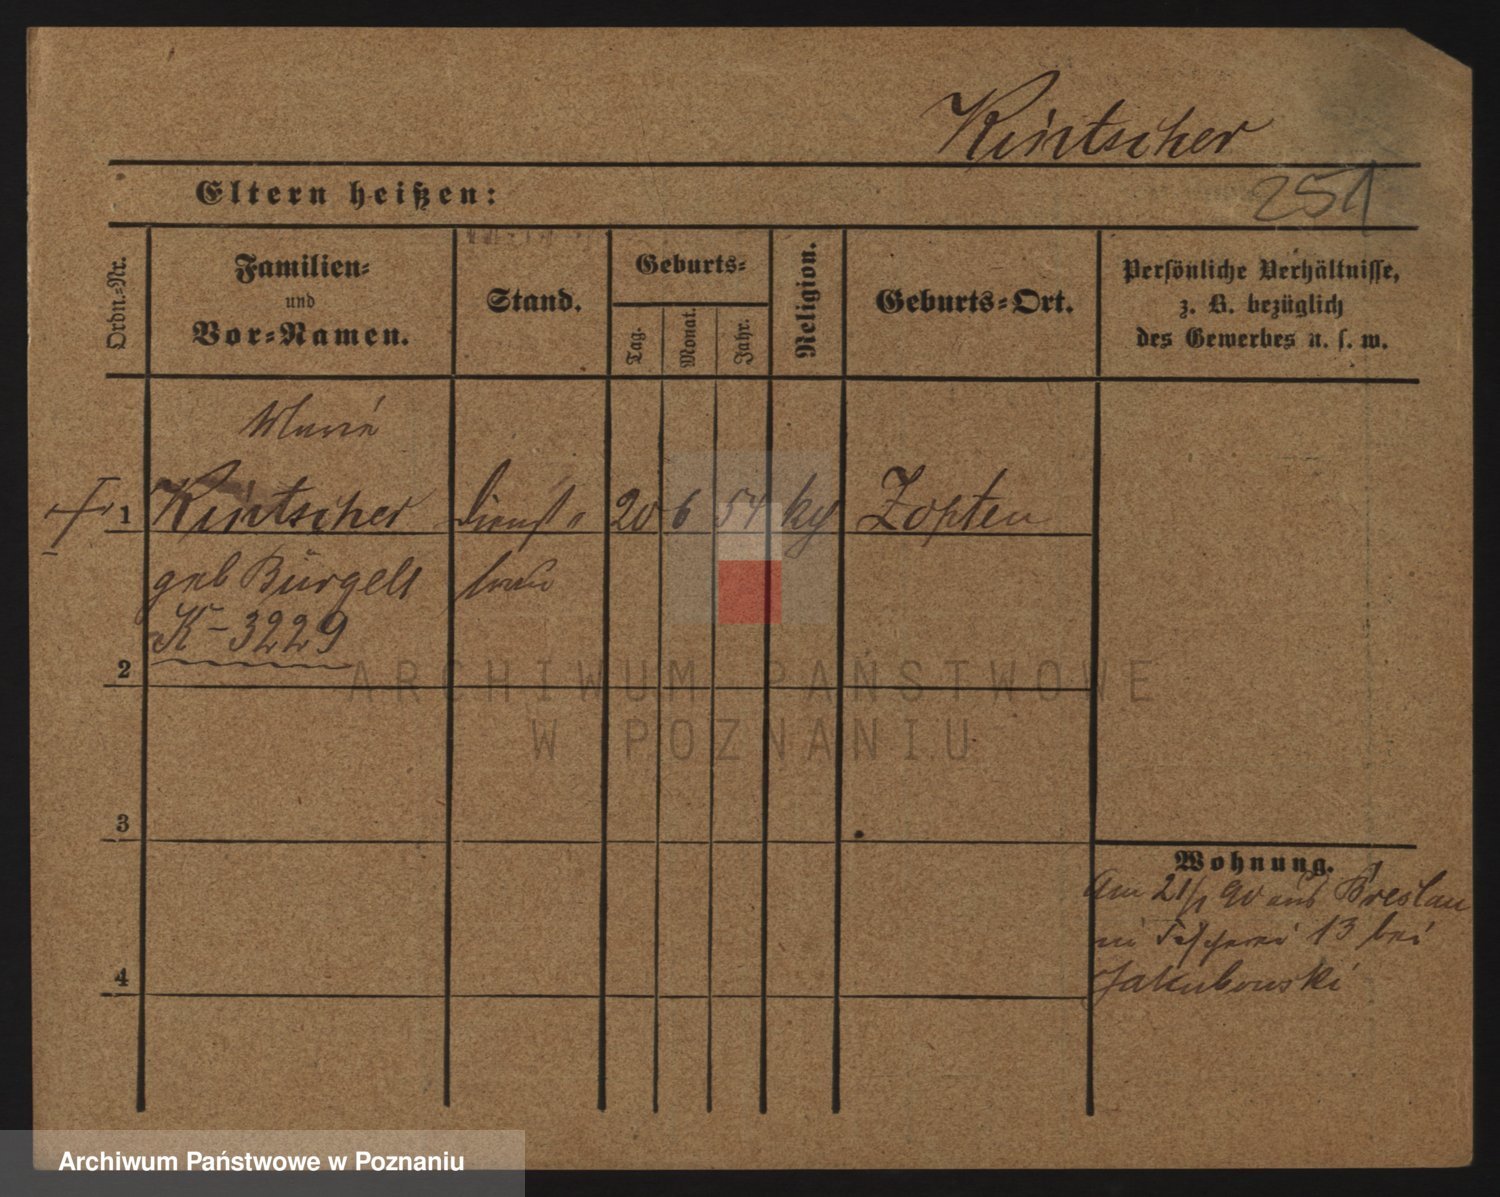 Kintscher
Eltern heißen:
251
Ordn.-Nr.
Familien-
und
Vor-Namen.
Stand.
Geburts-
Tag.
Monat.
Jahr.
Religion.
Geburts-Ort.
Persönliche Verhältnisse,
z. B. bezüglich
des Gewerbes u. s. w.
Marie
1 Kintscher Dienst 20 6 54 kg Zopten
geb Bürgelt frau
K-3229
2
3
4
Wohnung.
Am 21/1 90 aus Breslau
13 bei
Jakubowski
ARCHIWUM PAŃSTWOWE
W POZNANIU
Archiwum Państwowe w Poznaniu